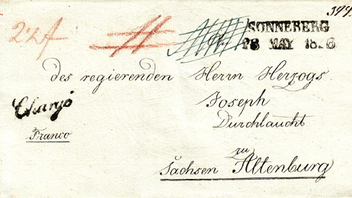 SONNEBERG
28 MAY
des regierenden Herrn Herzogs
Joseph
Durchlaucht
Chargé
Franco
zu
Sachsen Altenburg